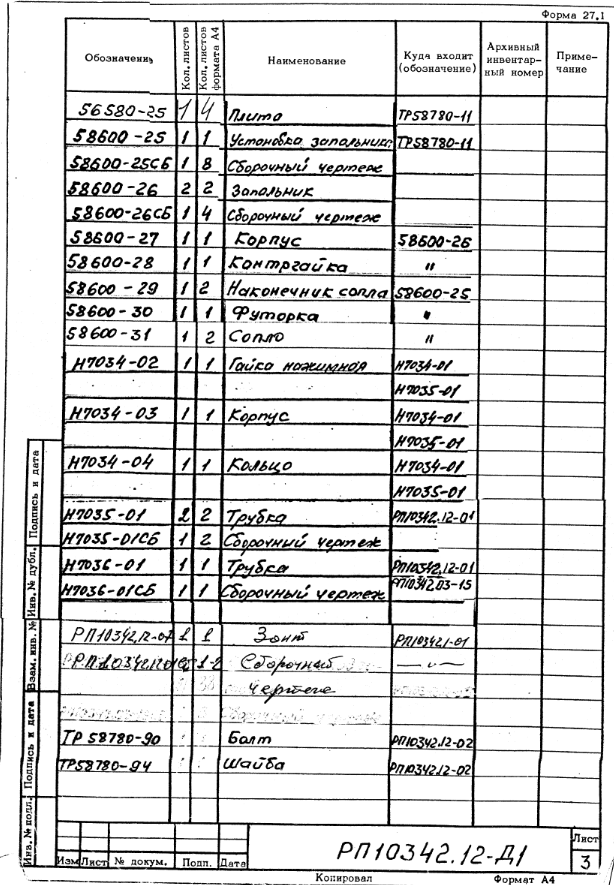 Форма 27.1
Обозначение Кол. листов Кол. листов формата А4 Наименование Куда входит (обозначение) Архивный инвентар- ный номер Приме- чание
56580-25 1 4 Плита ТР58780-11
58600-25 1 1 Установка запальника ТР58780-11
58600-25СБ 1 8 Сборочный чертеж
58600-26 2 2 Запальник
58600-26СБ 1 4 Сборочный чертеж
58600-27 1 1 Корпус 58600-26
58600-28 1 1 Контргайка "
58600-29 1 2 Наконечник сопла 58600-25
58600-30 1 1 Футорка "
58600-31 1 2 Сопло "
Н7034-02 1 1 Гайка нажимная Н7034-01
Н7035-01
Н7034-03 1 1 Корпус Н7034-01
Н7035-01
Н7034-04 1 1 Кольцо Н7034-01
Н7035-01
Н7035-01 2 2 Трубка РП10342.12-01
Н7035-01СБ 1 2 Сборочный чертеж
Н7036-01 1 1 Трубка РП10342.12-01
Н7036-01СБ 1 1 Сборочный чертеж РП10342.03-15
Зонт РП10342.1-01
Сборочный — " —
чертеж
ТР 58780-90 Болт РП10342.12-02
ТР58780-94 Шайба РП10342.12-02
Инв. № подл. Подпись и дата Взам. инв. № Инв. № дубл. Подпись и дата
Изм Лист № докум. Подп. Дата
РП10342.12-Д1
Лист
3
Копировал Формат А4